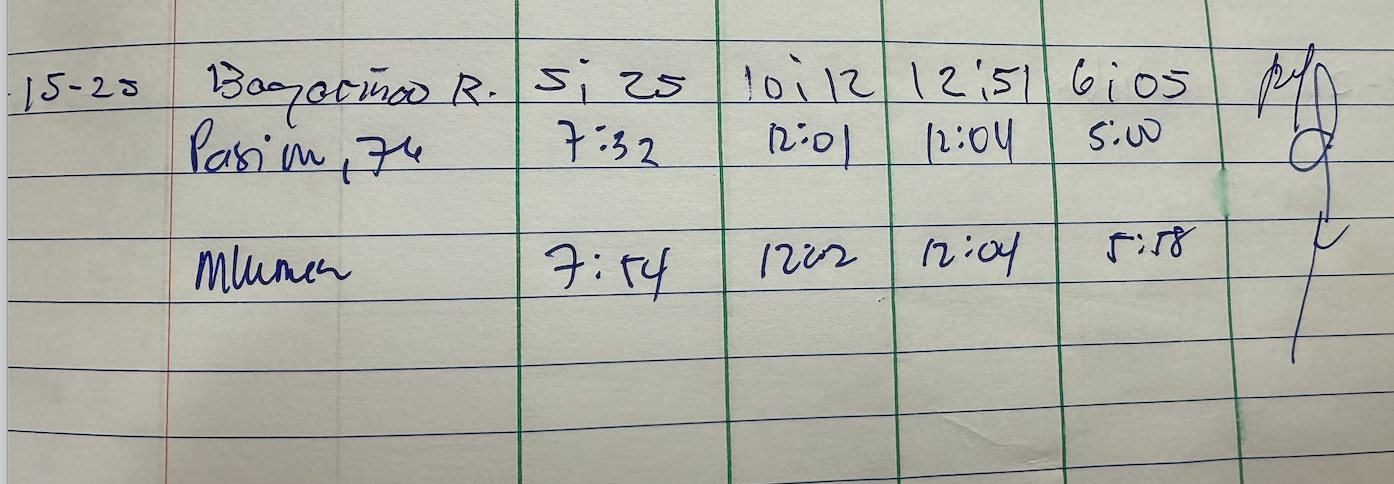 15-25 Bagariñao R. 5:25 10:12 12:51 6:05
7:32 12:01 12:04 5:00
7:54 12:02 12:04 5:58